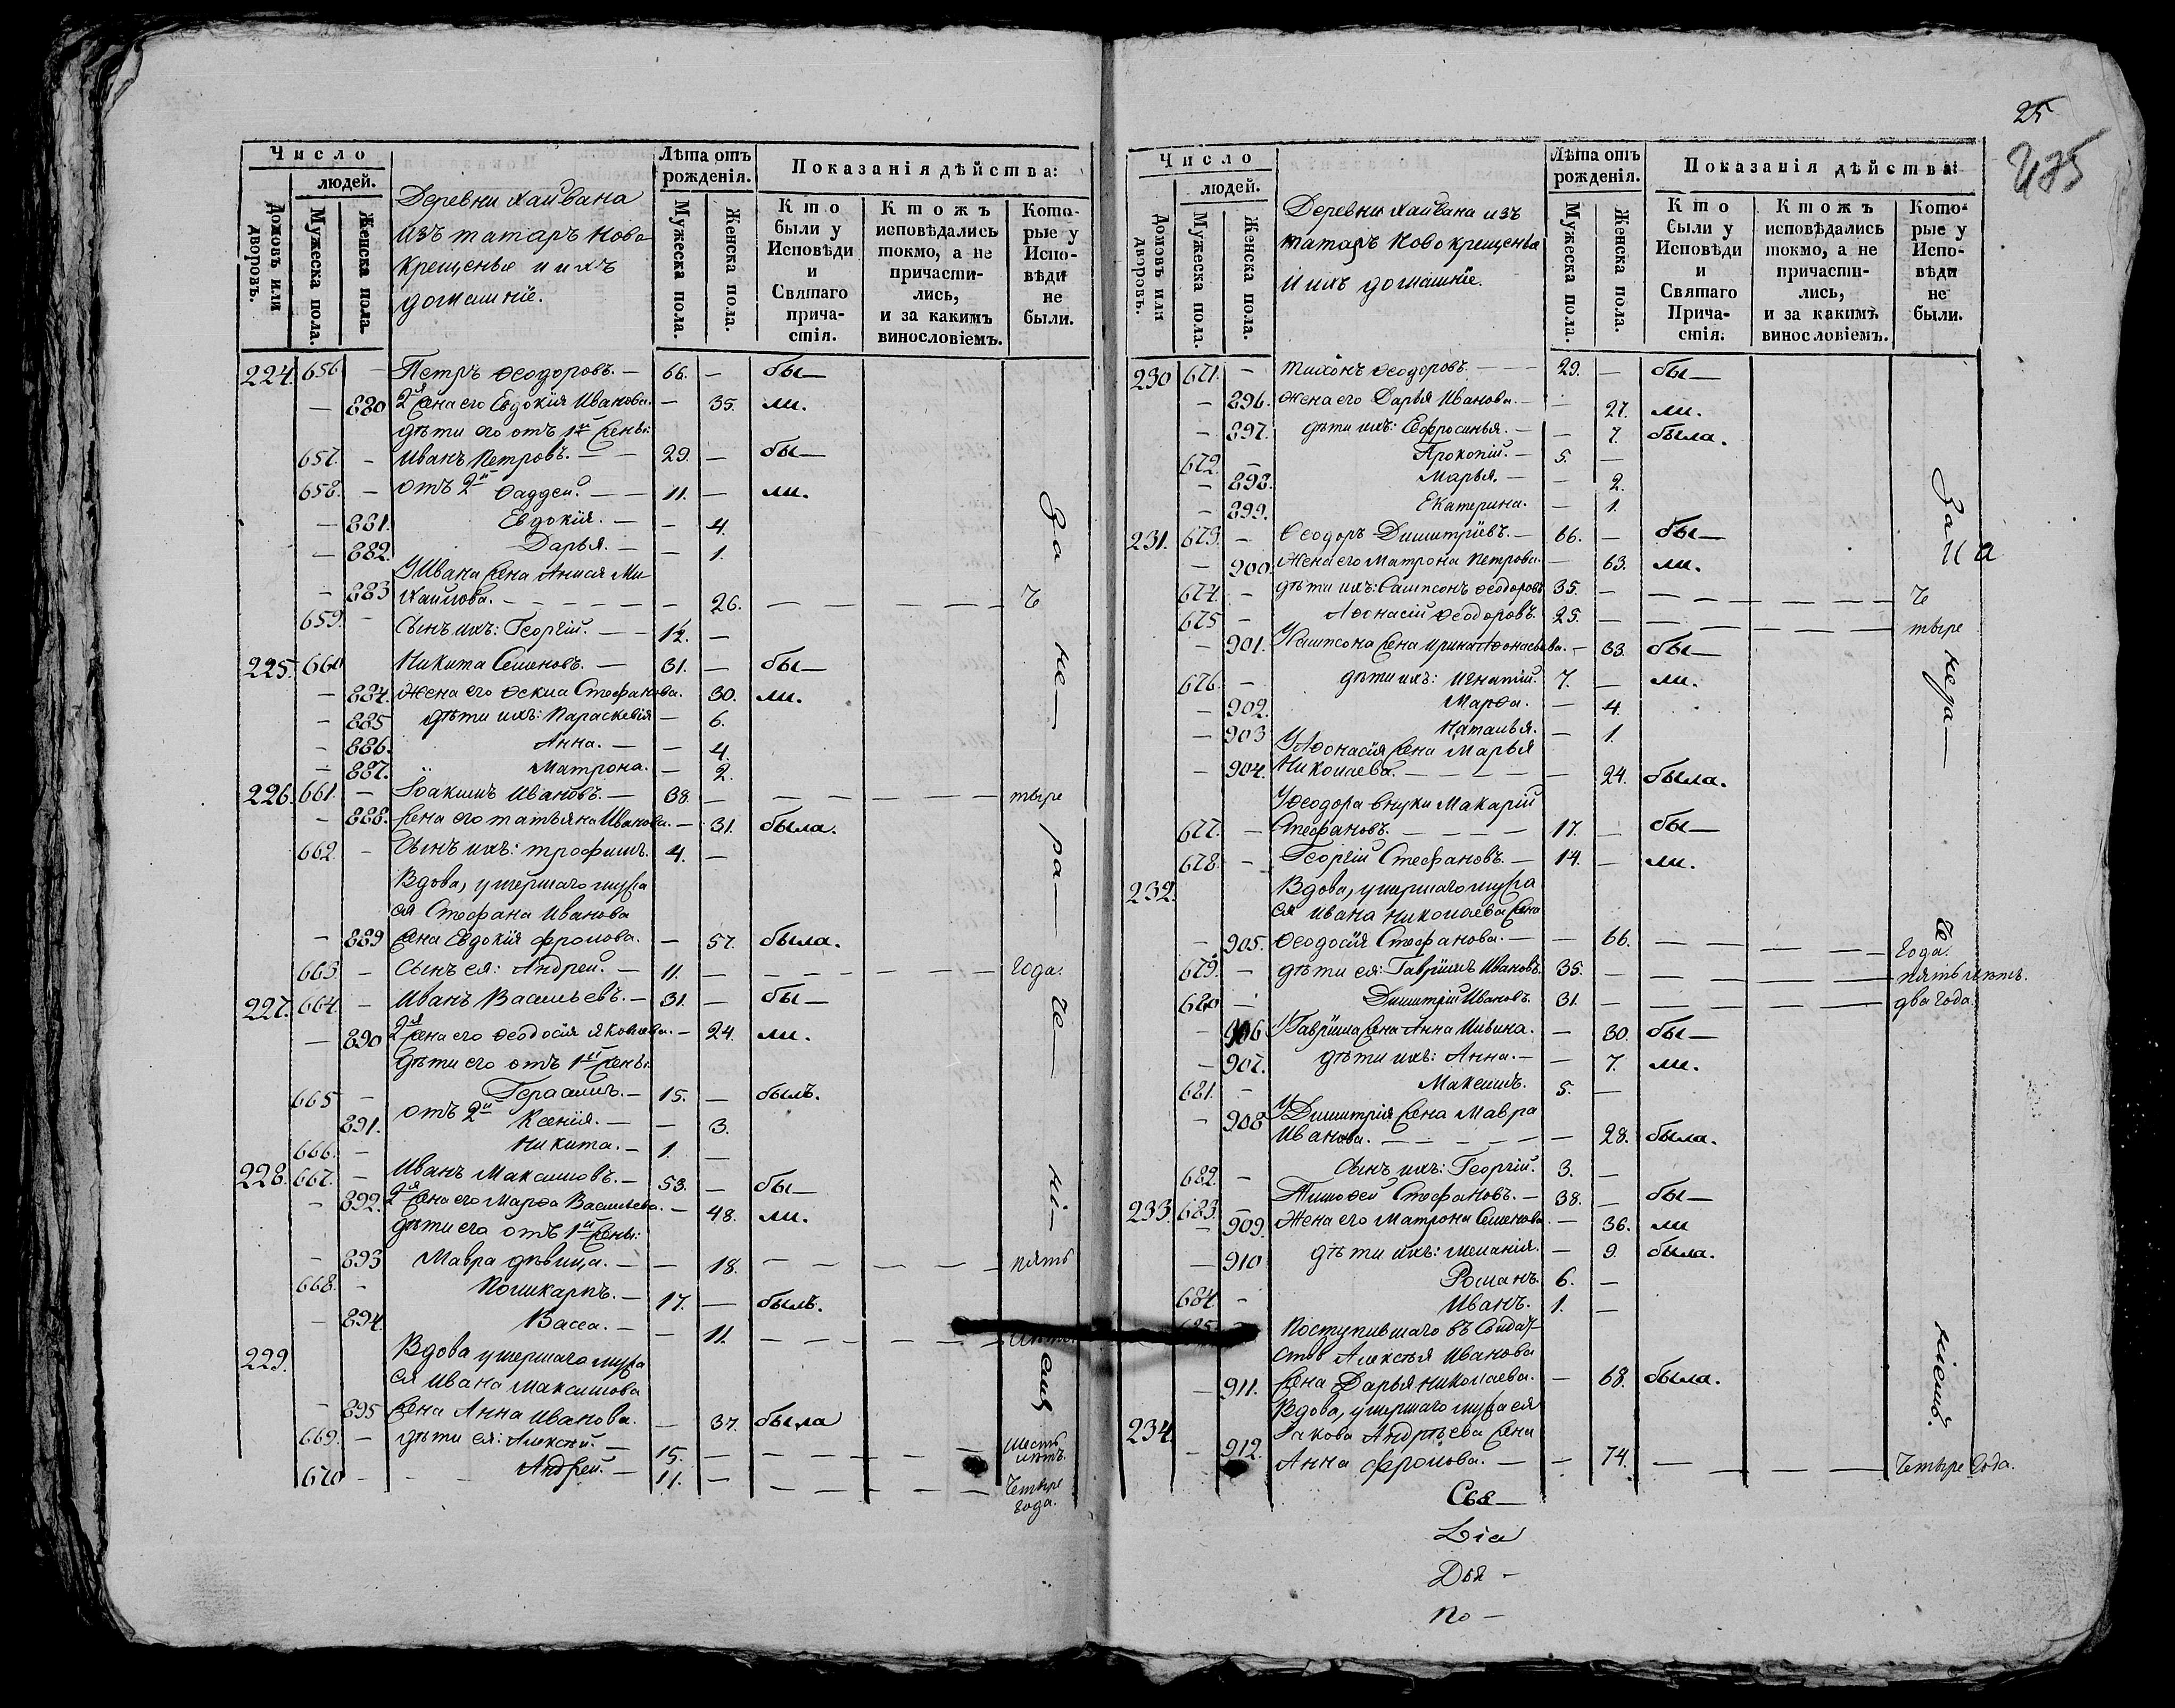 Число
людей.
Домовъ или дворовъ.
Мужеска пола.
Женска пола.
Деревни Хайвана
изъ татаръ ново
крещеные и ихъ
домашніе.
Лѣта отъ рожденія.
Мужеска пола.
Женска пола.
Показанія дѣйства:
Кто были у Исповѣди и Святаго причастія.
Ктожъ исповѣдались токмо, а не причастились, и за какимъ винословіемъ.
Которые у Исповѣди не были.
224. 656. — Петръ Ѳеодоровъ. — 66. — бы—
— 880 2я жена его Евдокія Иванова. — 35. ли.
дѣти его отъ 1й жены:
657. — Иванъ Петровъ. — 29. — бы—
658. — отъ 2й Ѳаддей. — 11. — ли.
— 881. Евдокія. — — 4.
— 882. Дарья. — — 1.
У Ивана жена Анисія Ми-
— 883 хайлова. — 26. — че
659. — Сынъ ихъ: Георгій. — 1½. —
225. 660 Никита Семеновъ. — 31. — бы—
— 884. Жена его Ѳекла Стефанова. 30. ли.
— 885 дѣти ихъ: Параскевія — 6.
— 886. Анна. — — 4.
— 887. Матрона. — 2.
226. 661. — Іоакимъ Ивановъ. — 38. — тыре
— 888. жена его Татьяна Иванова. — 31. была.
662. — Сынъ ихъ: Трофимъ. 4. —
Вдова, умершаго мужа
ея Стефана Иванова
— 889 жена Евдокія Фролова. — 57. была.
663. — Сынъ ея: Андрей. — 11. — года.
227. 664. — Иванъ Васильевъ. — 31. — бы—
— 890 2я жена его Ѳеодосія Яковлева. — 24. ли.
дѣти его отъ 1й жены:
665 — Герасимъ. — 15. — былъ.
891. отъ 2й Ксенія. — — 3.
666. — Никита. — 1. —
228. 667. — Иванъ Максимовъ. — 53. — бы—
— 892. 2я жена его Марѳа Васильева. — 48. ли.
дѣти его отъ 1й жены:
— 893 Мавра дѣвица. — — 18. — пять
668. — Поликарпъ. — 17. — былъ.
— 894. Васса. — — 11. —
229. Вдова умершаго мужа
ея Ивана Максимова
— 895 жена Анна Иванова. — 37. была
669. — дѣти ея: Алексѣй. — 15. — шесть лѣтъ.
670 — Андрей. — 11. — четыре года.
За не— ра— че— ні— емъ
25
435
Число
людей.
Домовъ или дворовъ.
Мужеска пола.
Женска пола.
Деревни Хайвана изъ
татаръ новокрещеные
и ихъ домашніе.
Лѣта отъ рожденія.
Мужеска пола.
Женска пола.
Показанія дѣйства:
Кто были у Исповѣди и Святаго Причастія.
Ктожъ исповѣдались токмо, а не причастились, и за какимъ винословіемъ.
Которые у Исповѣди не были.
230 671. — Тихонъ Ѳеодоровъ. — 29. — бы—
— 896. Жена его Дарья Иванова. — 27. ли.
— 897. дѣти ихъ: Евфросинья. — — 7. была.
672. — Прокопій. — 5. —
— 898. Марья. — — 2.
— 899. Екатерина. — 1.
231. 673. — Ѳеодоръ Димитріевъ. — 66. — бы—
— 900. Жена его Матрона Петрова. — 63. ли.
674 — дѣти ихъ: Сампсонъ Ѳеодоровъ 35. — че
675 — Аѳонасій Ѳеодоровъ. 25. — тыре
— 901. У Сампсона жена Ирина Аѳонасьева. — 33. бы—
676. — дѣти ихъ: Игнатій. 7. — ли.
— 902. Марѳа. — 4.
— 903 Наталья. — 1.
У Аѳонасія жена Марья
— 904. Николаева. — 24. была.
У Ѳеодора внуки Макарій
677. — Стефановъ. — 17. — бы—
678. — Георгій Стефановъ. — 14. — ли.
232. Вдова, умершаго мужа
ея Ивана Николаева жена
— 905. Ѳеодосія Стефанова. — — 66. — года.
679. — дѣти ея: Гавріилъ Ивановъ. 35. — пять лѣтъ.
680 — Димитрій Ивановъ. 31. — два года.
— 906 У Гавріила жена Анна Ильина. — 30. бы—
— 907. дѣти ихъ: Анна. — — 7. ли.
681. — Максимъ. 5. —
У Димитрія жена Мавра
— 908 Иванова. — 28. была.
682. — Сынъ ихъ: Георгій. 3. —
233. 683. — Тимоѳей Стефановъ. — 38. — бы—
— 909. Жена его Матрона Семенова. — 36. ли
— 910 дѣти ихъ: Меланія. — 9. была.
684. — Романъ. 6. —
685. Иванъ. 1. —
Поступившаго въ Солдат-
ство Алексѣя Иванова
— 911. жена Дарья Николаева. — 68. была.
234. Вдова, умершаго мужа ея
Іакова Андрѣева жена
— 912. Анна Фролова. — — 74. — Четыре года.
За не ра— че ніемъ.
Свя—
Діа
По —